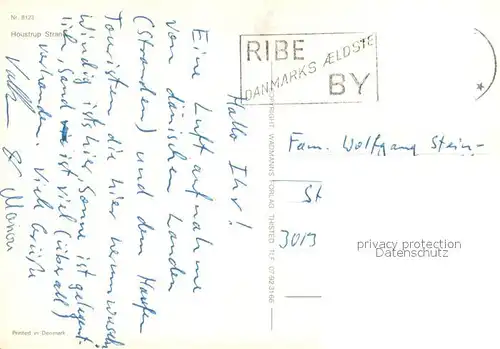 Nr. 8123
Houstrup Strand
Hallo Ihr!
Eine Luftaufnahme
von dänischen Landen
(Stranden) und dem Haufen
Touristen die hier herumwuseln
Windig ists hier, Sonne ist gelegent-
lich, Sand ist viel (überall)
vorhanden. Viele Grüße
& Marion
Printed in Denmark
COPYRIGHT WADMANNS FORLAG THISTED TLF. 07-92 31 66
RIBE
DANMARKS ÆLDSTE
BY
Fam. Wolfgang Stein-
St
3013
privacy protection
Datenschutz